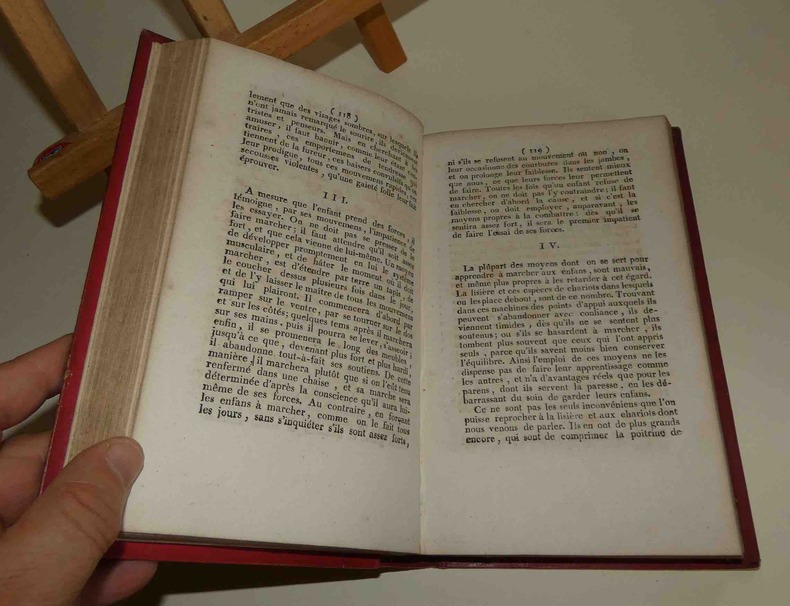 ( 118 )
lement que des visages sombres, sur lesquels ils
n'ont jamais remarqué le sourire, ils deviennent
tristes et penseurs. Mais en cherchant à les
amuser, il faut bannir, comme leur étant con-
traires, ces emportemens de tendresse qui
tiennent de la fureur, ces baisers convulsifs qu'on
leur prodigue, tous ces mouvemens rapides, ces
secousses violentes, qu'une gaieté folle leur fait
éprouver.
III.
A mesure que l'enfant prend des forces, il
témoigne, par ses mouvemens, l'impatience de
les essayer. On ne doit pas se presser de le
faire marcher; il faut attendre qu'il soit assez
fort, et que cela vienne de lui-même. Un moyen
de développer promptement en lui le système
musculaire, et de hâter le moment où il doit
marcher, est d'étendre par terre un tapis, de
le coucher dessus plusieurs fois dans le jour,
et de l'y laisser le maître de tous les mouvemens
qui lui plairont. Il commencera d'abord par
ramper sur le ventre, par se tourner sur le dos
et sur les côtés; quelques tems après il marchera
sur ses mains, puis il pourra se lever, s'asseoir;
enfin, il se promenera le long des meubles,
jusqu'à ce que, devenant plus fort et plus hardi,
il abandonne tout-à-fait ses soutiens. De cette
manière, il marchera plutôt que si on l'eût tenu
renfermé dans une chaise, et sa marche sera
déterminée d'après la conscience qu'il aura lui-
même de ses forces. Au contraire, en forçant
les enfans à marcher, comme on le fait tous
les jours, sans s'inquiéter s'ils sont assez forts,
( 119 )
ni s'ils se refusent au mouvement ou non, on
leur occasionne des courbures dans les jambes,
et on prolonge leur faiblesse. Ils sentent mieux
que nous, ce que leurs forces leur permettent
de faire. Toutes les fois qu'un enfant refuse de
marcher, on ne doit pas l'y contraindre; il faut
en chercher d'abord la cause, et si c'est la
faiblesse, on doit employer, auparavant, les
moyens propres à la combattre: dès qu'il se
sentira assez fort, il sera le premier impatient
de faire l'essai de ses forces.
IV.
La plûpart des moyens dont on se sert pour
apprendre à marcher aux enfans, sont mauvais,
et même plus propres à les retarder à cet égard.
La lisière et ces espèces de chariots dans lesquels
on les place debout, sont de ce nombre. Trouvant
dans ces machines des points d'appui auxquels ils
peuvent s'abandonner avec confiance, ils de-
viennent timides, dès qu'ils ne se sentent plus
soutenus; ou s'ils se hasardent à marcher, ils
tombent plus souvent que ceux qui l'ont appris
seuls, parce qu'ils savent moins bien conserver
l'équilibre. Ainsi l'emploi de ces moyens ne les
dispense pas de faire leur apprentissage comme
les autres, et n'a d'avantages réels que pour les
parens, dont ils servent la paresse, en les dé-
barrassant du soin de garder leurs enfans.
Ce ne sont pas les seuls inconvéniens que l'on
puisse reprocher à la lisière et aux chariots dont
nous venons de parler. Ils en ont de plus grands
encore, qui sont de comprimer la poitrine de